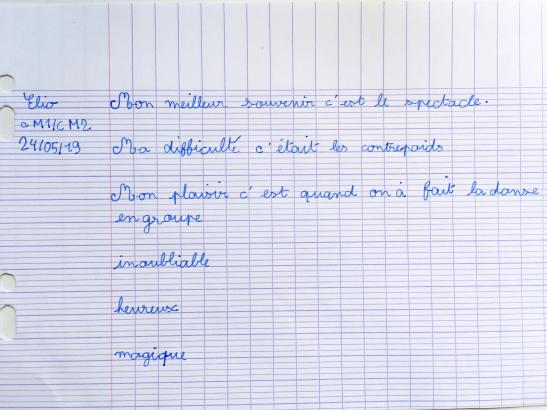 Elio
CM1/CM2
24/05/19
Mon meilleur souvenir c'est le spectacle.
Ma difficulté c'était les contrepoids
Mon plaisir c'est quand on à fait la danse
en groupe
inoubliable
heureux
magique